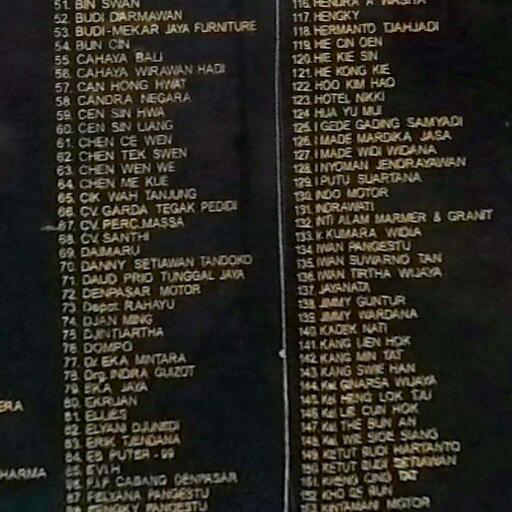 51. BIN SWAN
52. BUDI DARMAWAN
53. BUDI-MEKAR JAYA FURNITURE
54. BUN CIN
55 CAHAYA BALI
56. CAHAYA WIRAWAN HADI
57. CAN HONG HWAT
58 CANDRA NEGARA
59. CEN SIN HWA
60. CEN SIN LIANG
61. CHEN CE WEN
62. CHEN TEK SWEN
63. CHEN WEN WE
64. CHEN ME KUE
65. CIK WAH TANJUNG
66. CV. GARDA TEGAK PEDIDI
67. CV. PERC. MASSA
68. CV. SANTHI
69. DAIMARU
70. DANNY SETIAWAN TANDOKO
71. DAUD PRIO TUNGGAL JAYA
72. DENPASAR MOTOR
73. Depot RAHAYU
74. DJAN MING
75. DJINTIARTHA
76. DOMPO
77. Dr. EKA MINTARA
78. Drg. INDRA GUIZOT
79. EKA JAYA
80. EKRUAN
81. ELLIES
82. ELYANI DJUNEDI
83. ERIK TJENDANA
84. ES PUTER - 99
85. EVI H
86. F.I.F CABANG DENPASAR
87. FELYANA PANGESTU
88. FENGKY PANGESTU
ERA
HARMA
116. HENDRA A WASITA
117. HENGKY
118. HERMANTO TJAHJADI
119. HIE CIN OEN
120. HIE KIE SIN
121. HIE KONG KIE
122. HOO KIM HAO
123. HOTEL NIKKI
124. HUA YU MUI
125. I GEDE GADING SAMYADI
126. I MADE MARDIKA JASA
127. I MADE WIDI WIDANA
128. I NYOMAN JENDRAYAWAN
129. I PUTU SUARTANA
130. INDO MOTOR
131. INDRAWATI
132. INTI ALAM MARMER & GRANIT
133. Ir. KUMARA WIDIA
134. IWAN PANGESTU
135. IWAN SUWARNO TAN
136. IWAN TIRTHA WIJAYA
137. JAYANATA
138. JIMMY GUNTUR
139. JIMMY WARDANA
140. KADEK NATI
141. KANG LIEN HOK
142. KANG MIN TAT
143. KANG SWIE HAN
144. Kel. GINARSA WIJAYA
145. Kel. HENG LOK TAI
146. Kel. LIE CUN HOK
147. Kel. THE BUN AN
148. Kel. WIE SIOE SIANG
149. KETUT BUDI HARYANTO
150. KETUT BUDI SETIAWAN
151. KHENG CING TAT
152. KHO GE BUN
153. KINTAMANI MOTOR